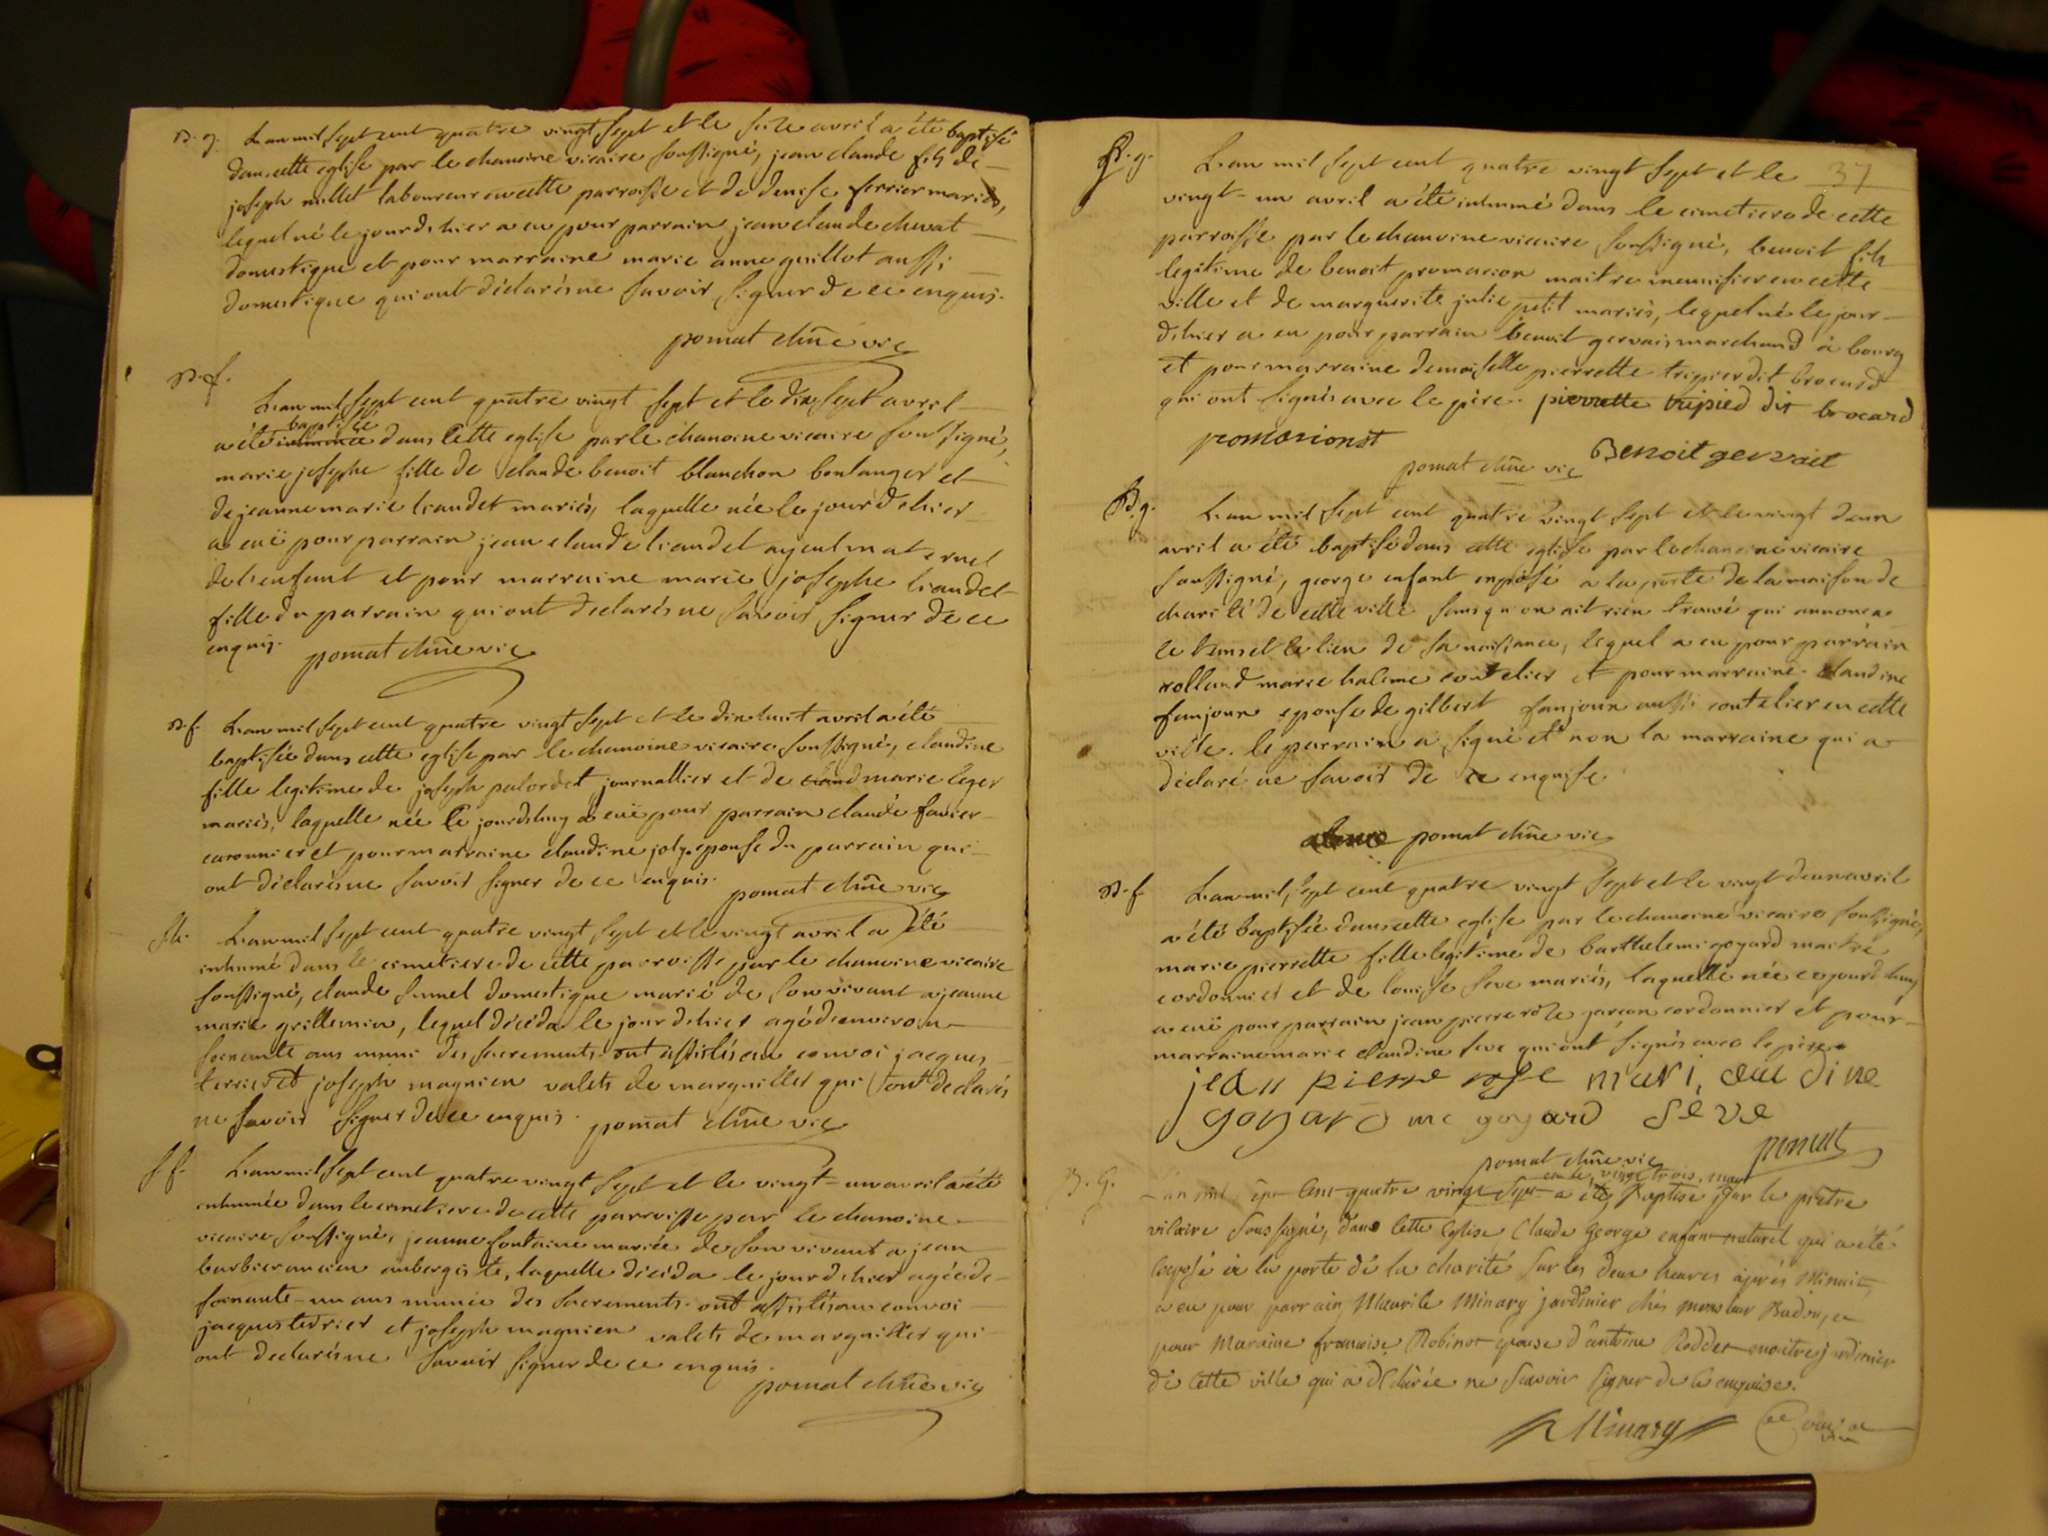 B. g. L'an mil sept cent quatre vingt sept et le seize avril a été baptisé
dans cette eglise par le chanoine vicaire soussigné, jean claude fils de
joseph millet laboureur en cette parroisse et de denise ferrier mariés,
lequel né le jour d'hier a eu pour parrain jean claude chevat
domestique et pour marraine marie anne guillot aussi
domestique qui ont déclarés ne savoir signer de ce enquis.
pomat chne vic
B. f.
L'an mil sept cent quatre vingt sept et le dix sept avril
baptisée
a été inhumée dans cette eglise par le chanoine vicaire soussigné,
marie josephe fille de claude benoit blanchon boulanger et
de jeanne marie liaudet mariés, laquelle née le jour d'hier
a euë pour parrain jean claude liaudet ayeul maternel
de l'enfant et pour marraine marie josephe liaudet
fille du parrain qui ont declarés ne savoir signer de ce
enquis. pomat chne vic
B. f. L'an mil sept cent quatre vingt sept et le dix huit avril a été
baptisée dans cette eglise par le chanoine vicaire soussigné, claudine
fille legitime de joseph palordet journallier et de claud marie leger
mariés, laquelle née le jourdhuy a euë pour parrain claude favier
caronnier et pour marraine claudine joly epouse du parrain qui
ont déclarés ne savoir signer de ce enquis. pomat chne vic
S. h. L'an mil sept cent quatre vingt sept et le vingt avril a été
inhumé dans le cimetiere de cette parroisse par le chanoine vicaire
soussigné, claude domestique marié de son vivant a jeanne
marie grillemin, lequel décéda le jour d'hier agé d'environ
soixante ans muni des sacrements. ont assistés au convoi jacques
terrier et joseph magnien valets de marguiller qui ont declarés
ne savoir signer de ce enquis. pomat chne vic
S. f. L'an mil sept cent quatre vingt sept et le vingt-un avril a été
inhumée dans le cimetiere de cette parroisse par le chanoine
vicaire soussigné, jeanne fontaine mariée de son vivant a jean
barbier ancien aubergiste, laquelle décéda le jour d'hier agée de
soixante-un ans munie des sacrements. ont assistés au convoi
jacques terrier et joseph magnien valets de marguiller qui
ont declarés ne savoir signer de ce enquis.
pomat chne vic
37
B. g. L'an mil sept cent quatre vingt sept et le
vingt-un avril a été inhumé dans le cimetiere de cette
parroisse par le chanoine vicaire soussigné, benoit fils
legitime de benoit promarion maitre menuisier en cette
ville et de marguerite julie petit mariés, lequel né le jour
d'hier a eu pour parrain benoit gervais marchand à bourg
et pour marraine demoiselle pierrette tripier dit brocard
qui ont signés avec le père. pierrette tripied dit brocard
promarionst
pomat chne vic Benoit gervait
B. g. L'an mil sept cent quatre vingt sept et le vingt deux
avril a été baptisé dans cette eglise par le chanoine vicaire
soussigné, george enfant exposé a la porte de la maison de
charité de cette ville sans qu'on ait rien trouvé qui annonca
le tems et le lieu de sa naissance, lequel a eu pour parrain
rolland marie coutelier et pour marraine claudine
fanjoux epouse de gilbert fanjoux aussi coutelier en cette
ville. le parrain a signé et non la marraine qui a
déclaré ne savoir de ce enquise.
pomat chne vic
B. f. L'an mil sept cent quatre vingt sept et le vingt deux avril
a été baptisée dans cette eglise par le chanoine vicaire soussigné,
marie pierrette fille legitime de barthelemi goyard maitre
cordonnier et de louise seve mariés, laquelle née ce jourd'huy
a euë pour parrain jean pierre roze garçon cordonnier et pour
marraine marie claudine seve qui ont signés avec le père
jean pierre rose mari, clau dine
goyard me goyard seve
pomat chne vic
et le vingt trois mars
B. G. L'an mil sept cent quatre vingt sept a été Baptisé par le prêtre
vicaire soussigné, dans cette Eglise Claude George enfant naturel qui a été
Exposé à la porte de la charité sur les deux heures après Minuit,
a eu pour parrain Maurile Minary jardinier chés monsieur et
pour Maraine francoise Robinot epouse d'antoine Reddet maitre jardinier
de cette ville qui a déclarée ne Scavoir signer de ce enquise.
Minary